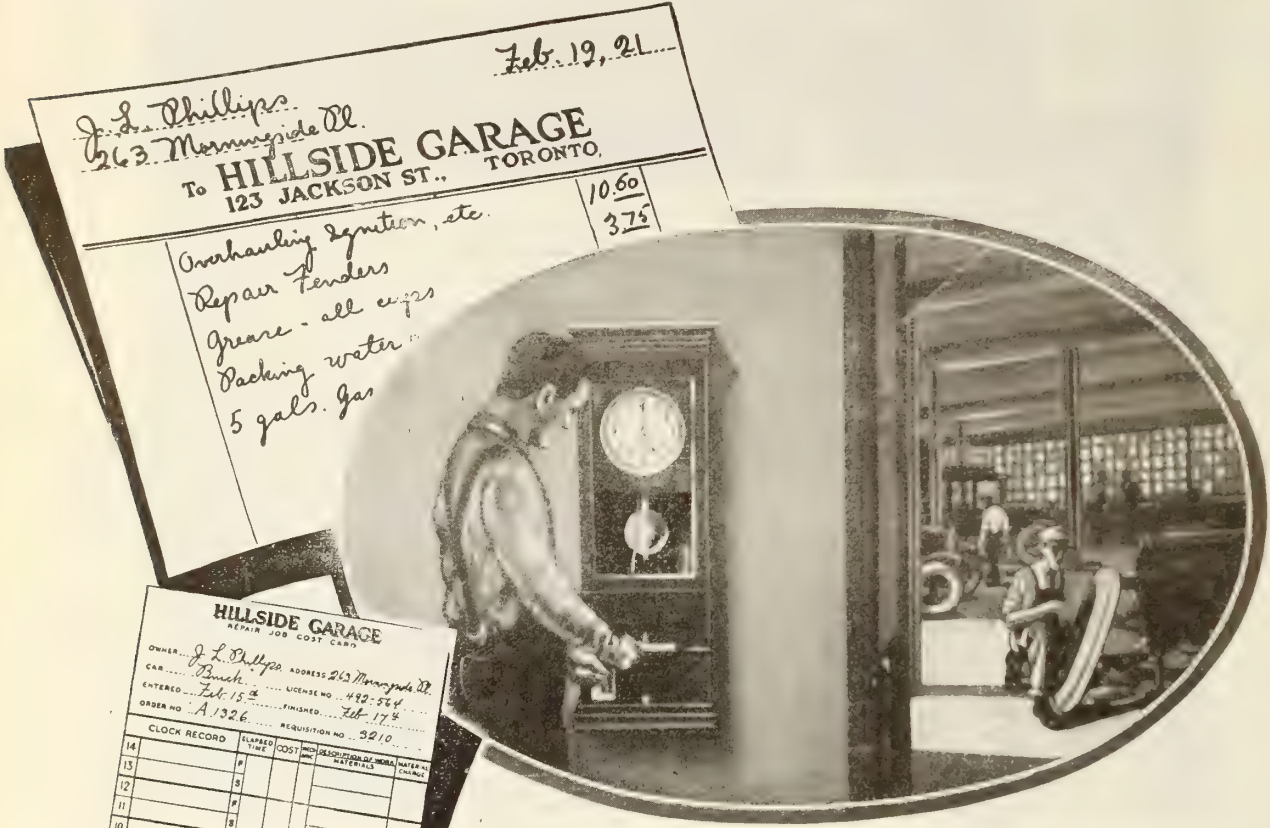 Feb. 19, 21
J. L. Phillips
263 Morningside Pl.
To HILLSIDE GARAGE
123 JACKSON ST., TORONTO,
Overhauling Ignition, etc. 10.60
Repair Fenders 3.75
Grease - all cups
Packing water
5 gals. Gas
HILLSIDE GARAGE
REPAIR JOB COST CARD
OWNER J. L. Phillips ADDRESS 263 Morningside Pl.
CAR Buick LICENSE NO 492-564
ENTERED Feb. 15 FINISHED Feb 17
ORDER NO A.1326 REQUISITION NO 3210
CLOCK RECORD ELAPSED TIME COST DESCRIPTION OF WORK MATERIALS MATERIAL CHARGE
14 F
13 S
12 F
11 S
10